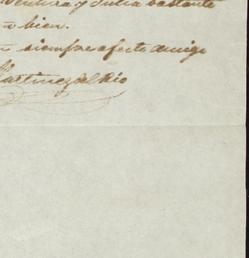 y Julia bastante
bien.
siempre afecto amigo
Martinez del Rio